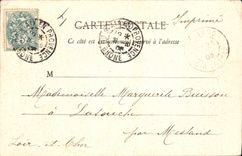 Imprimé
CARTE POSTALE
Ce côté est exclusivement réservé à l'adresse
M
Mademoiselle Marguerite Buisson
à Latouche
par Mesland
Loir-et-Cher